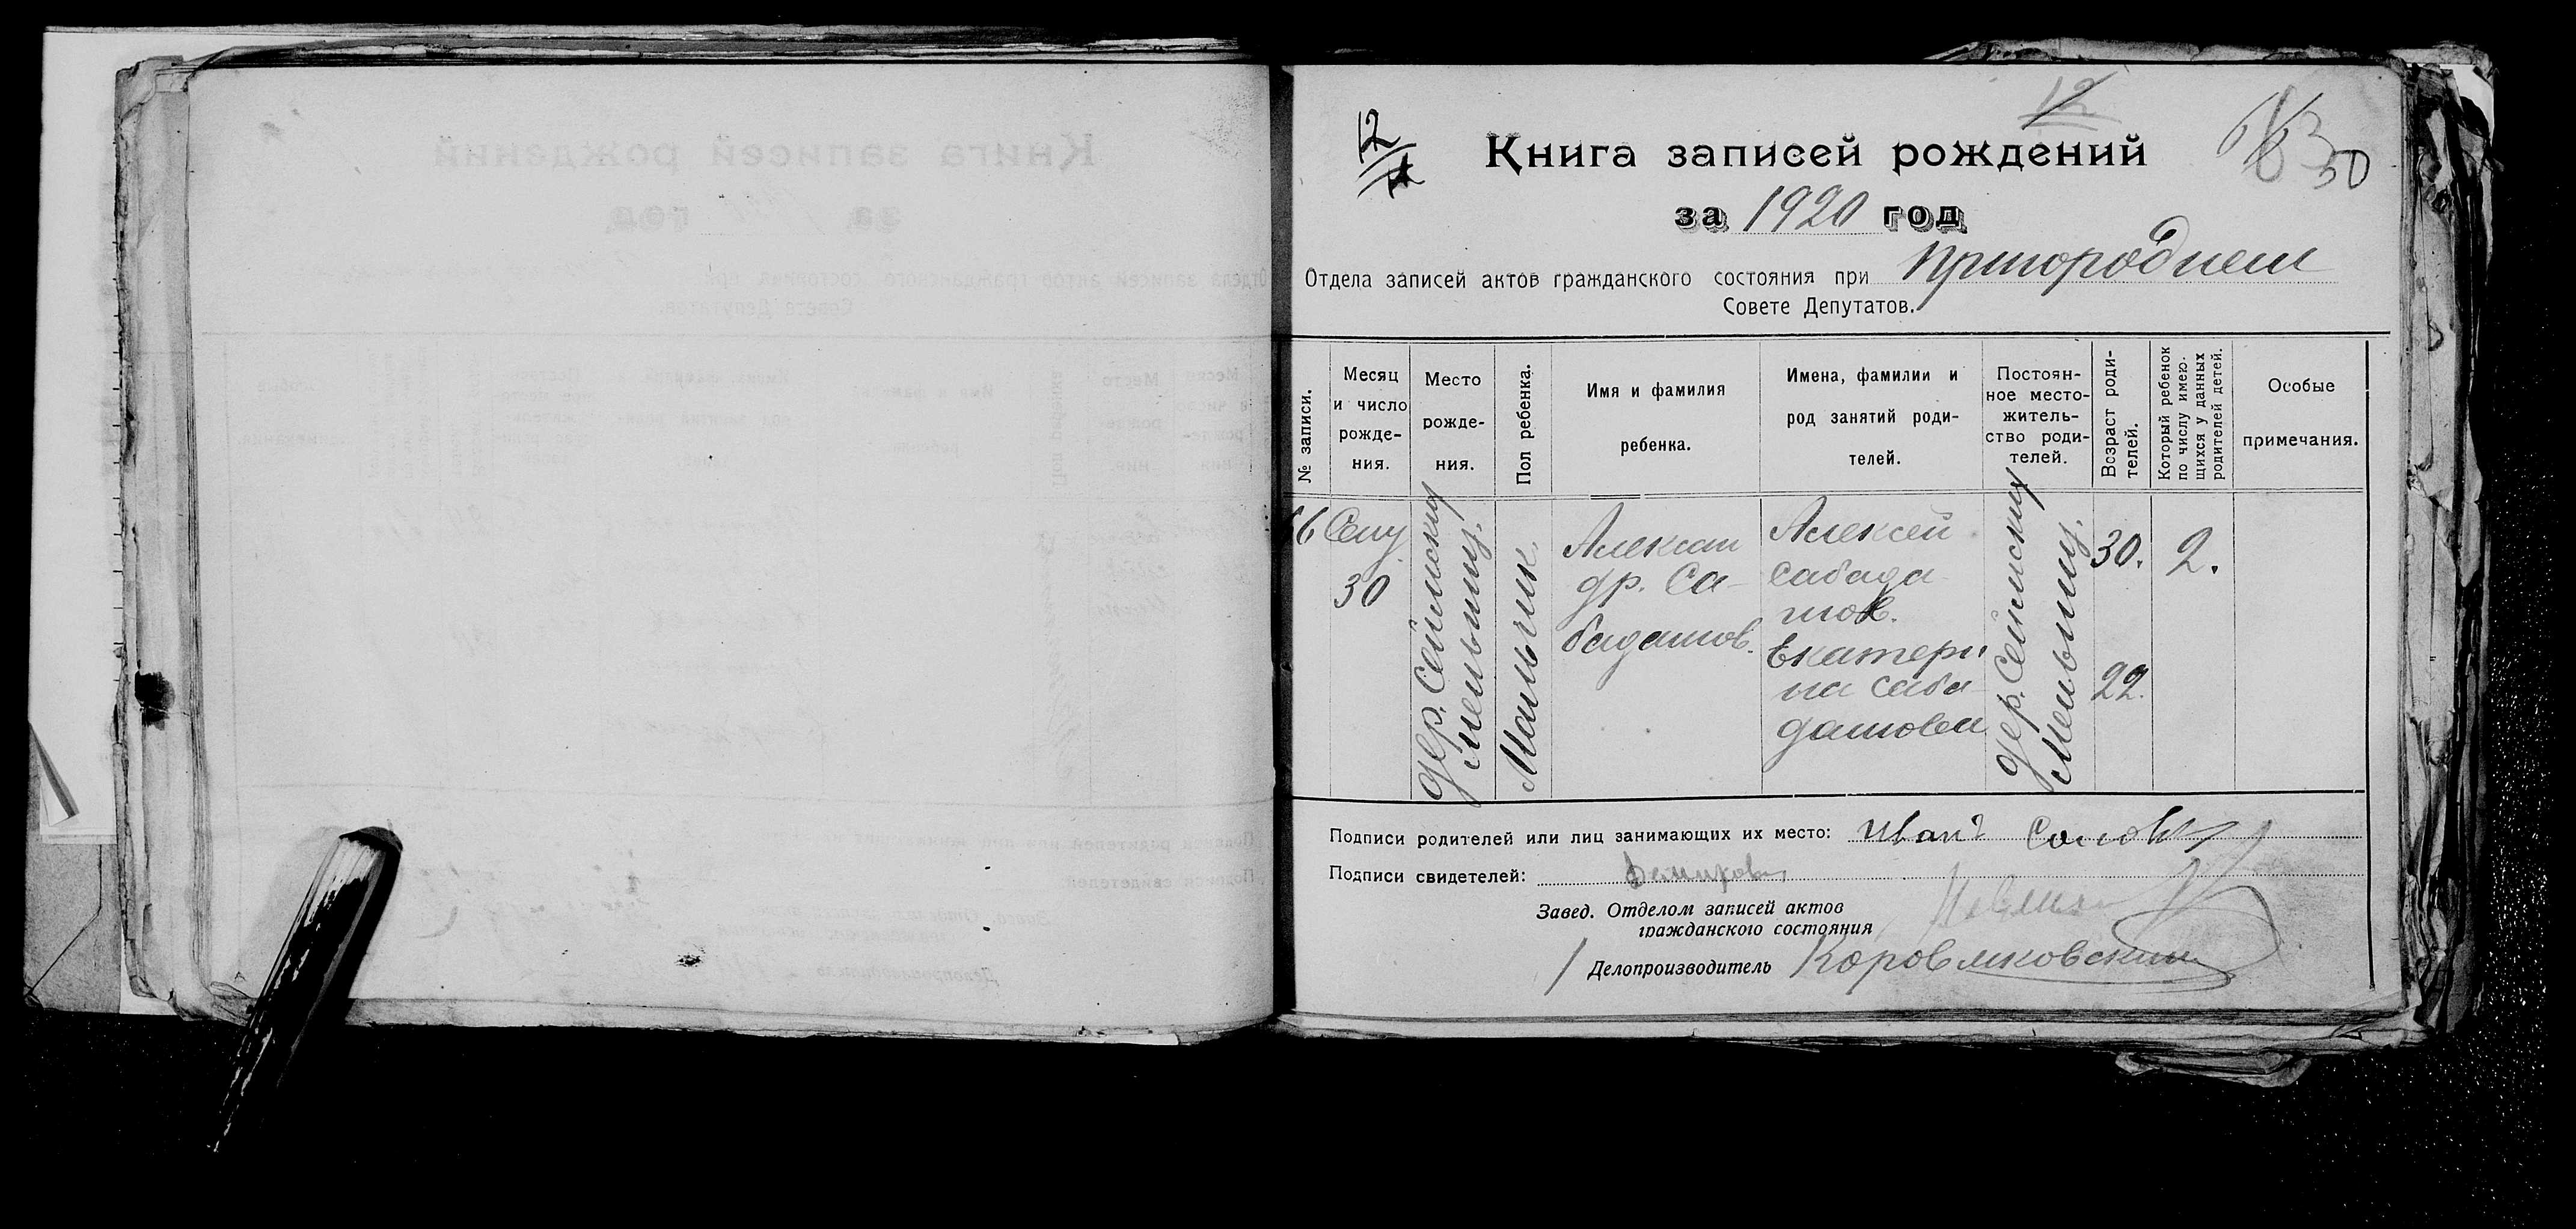 12
12
50
Книга записей рождений
за 1920 год
Отдела записей актов гражданского состояния при Пригороднем
Совете Депутатов.
№ записи.
Месяц и число рожде- ния.
Место рожде- ния.
Пол ребенка.
Имя и фамилия ребенка.
Имена, фамилии и род занятий роди- телей.
Постоян- ное место- житель- ство роди- телей.
Возраст роди- телей.
Который ребенок по числу имею- щихся у данных родителей детей.
Особые примечания.
66
Сент
30
дер. Сеймских
Мельниц.
Мальчик.
Алексан
др. Са-
бадашов.
Алексей
Сабада
шов.
Екатери
на Саба
дашовеи
дер. Сеймских
Мельниц.
30.
22.
2.
Подписи родителей или лиц занимающих их место: Иванъ
Подписи свидетелей:
Завед. Отделом записей актов
гражданского состояния
Делопроизводитель